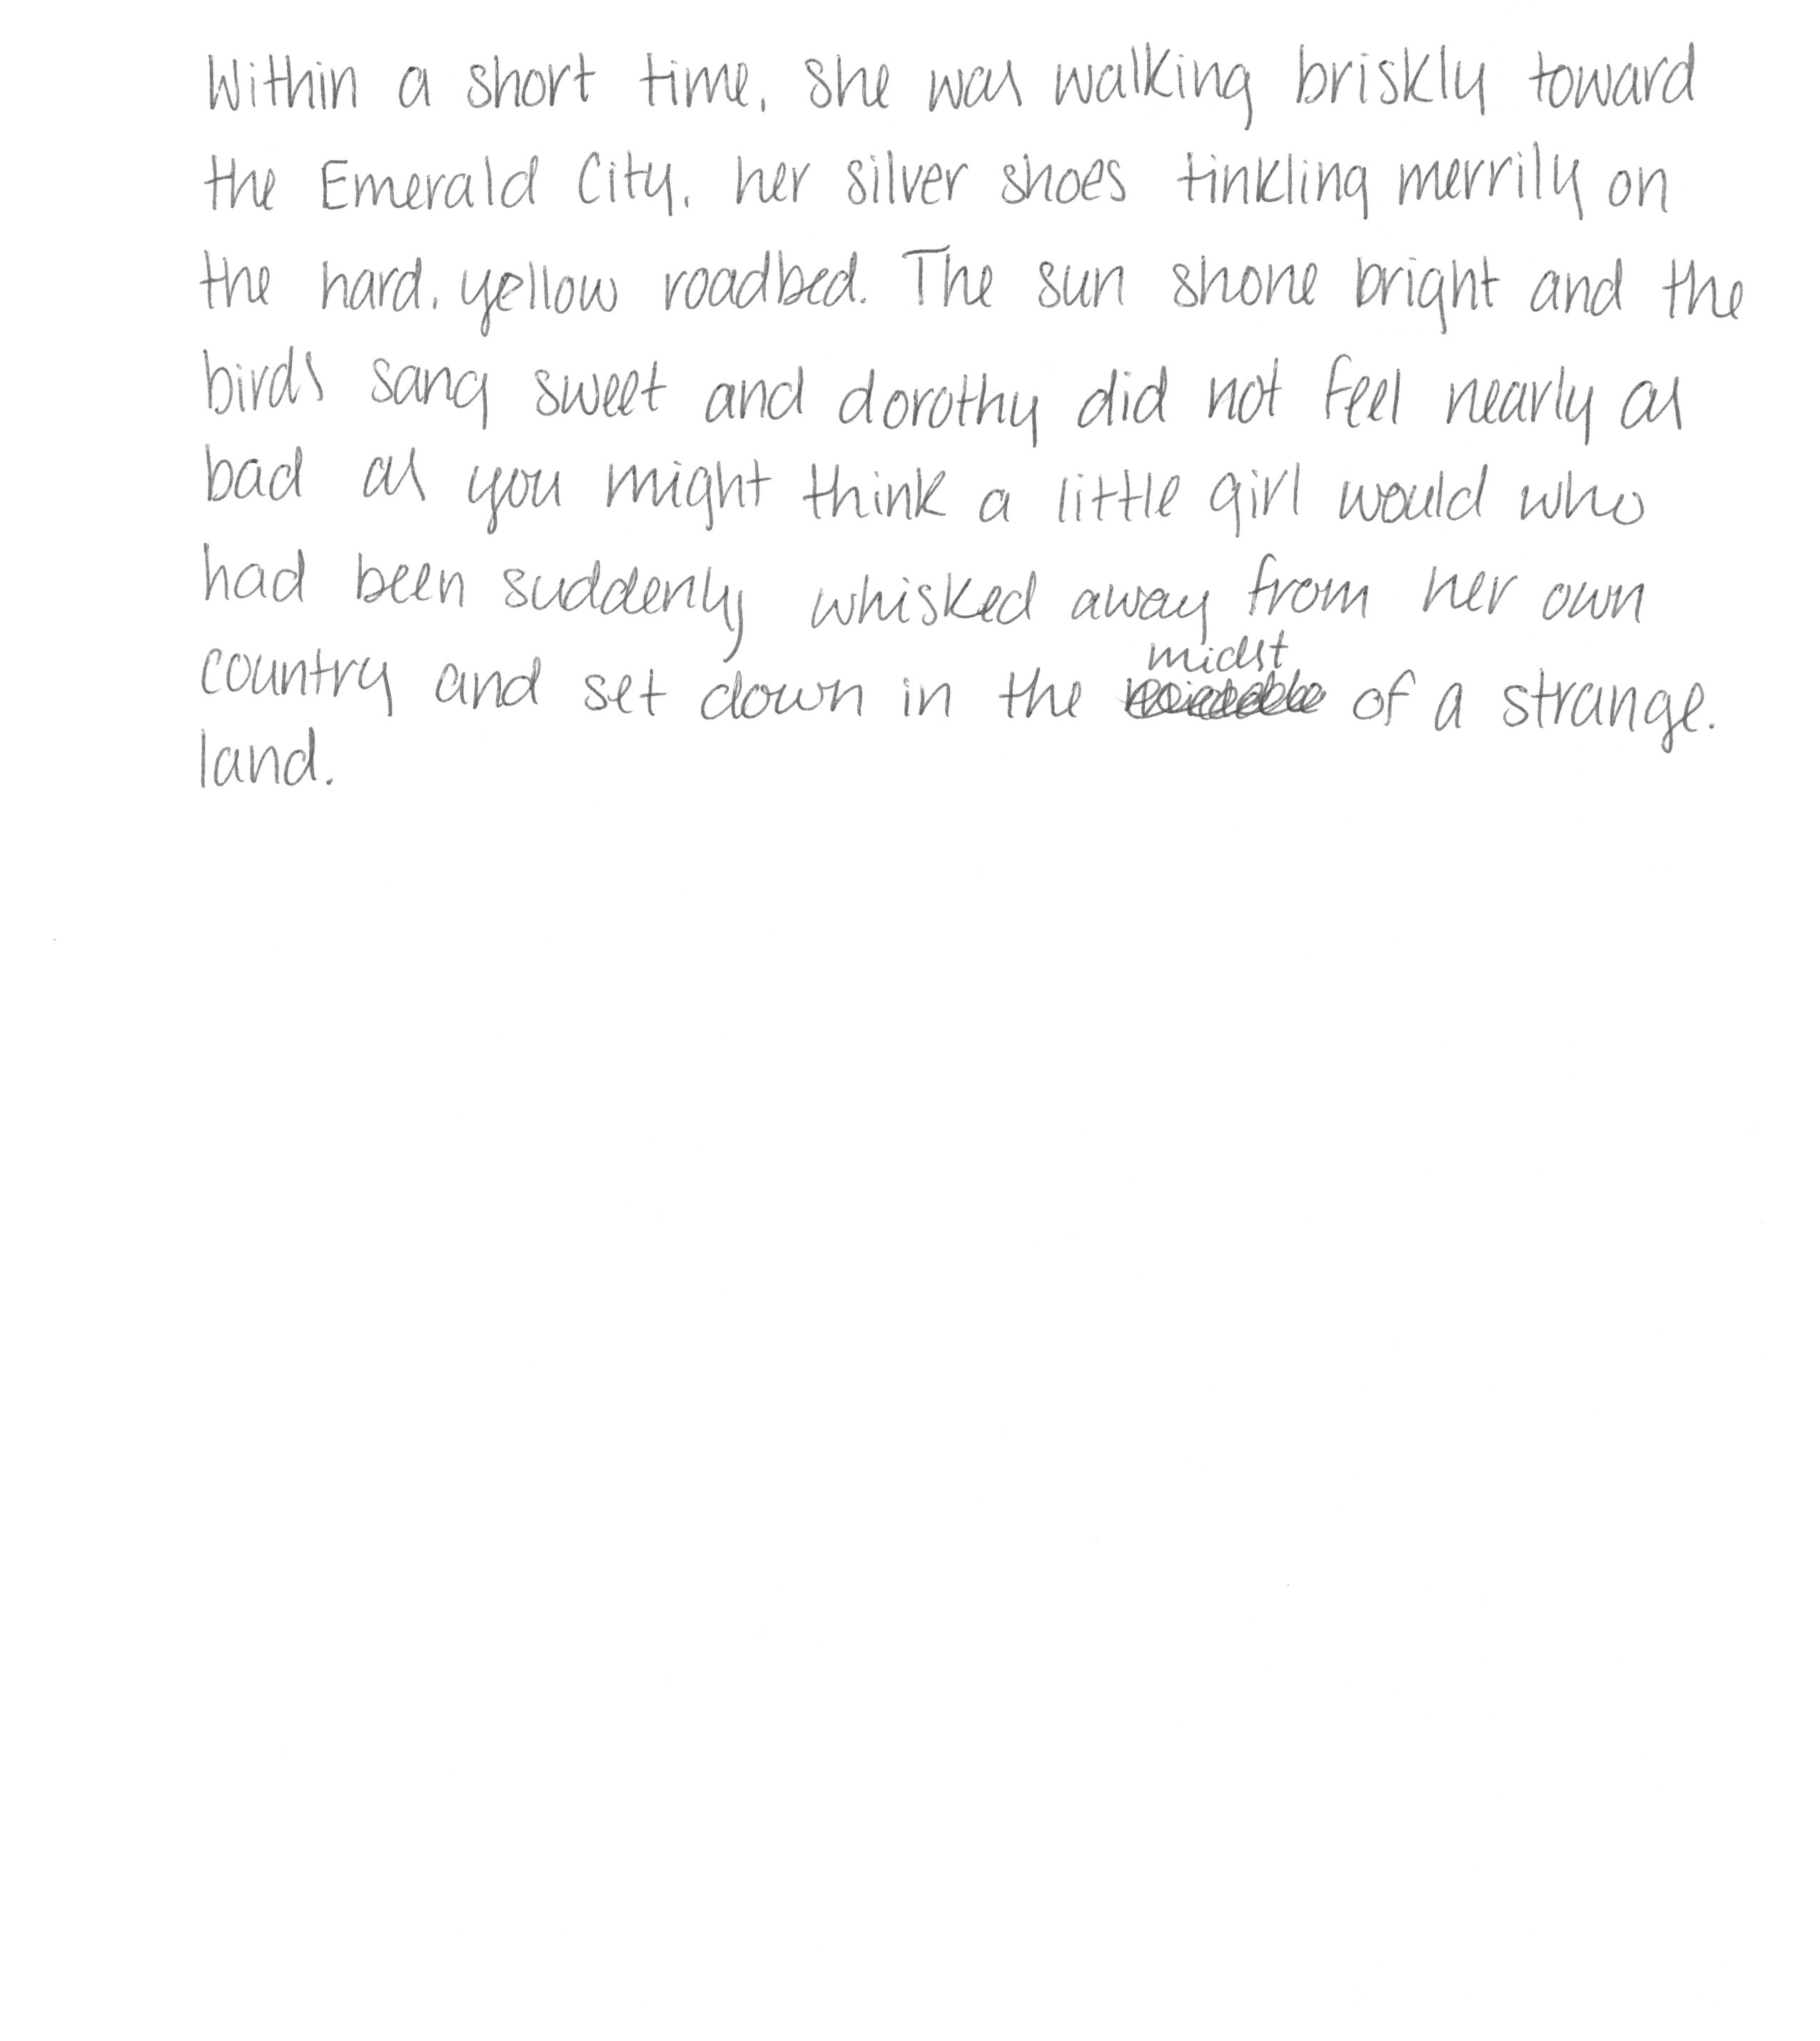 Within a short time, she was walking briskly toward
the Emerald City, her silver shoes tinkling merrily on
the hard, yellow roadbed. The sun shone bright and the
birds sang sweet and dorothy did not feel nearly as
bad as you might think a little girl would who
had been suddenly whisked away from her own
country and set down in the midst of a strange.
land.